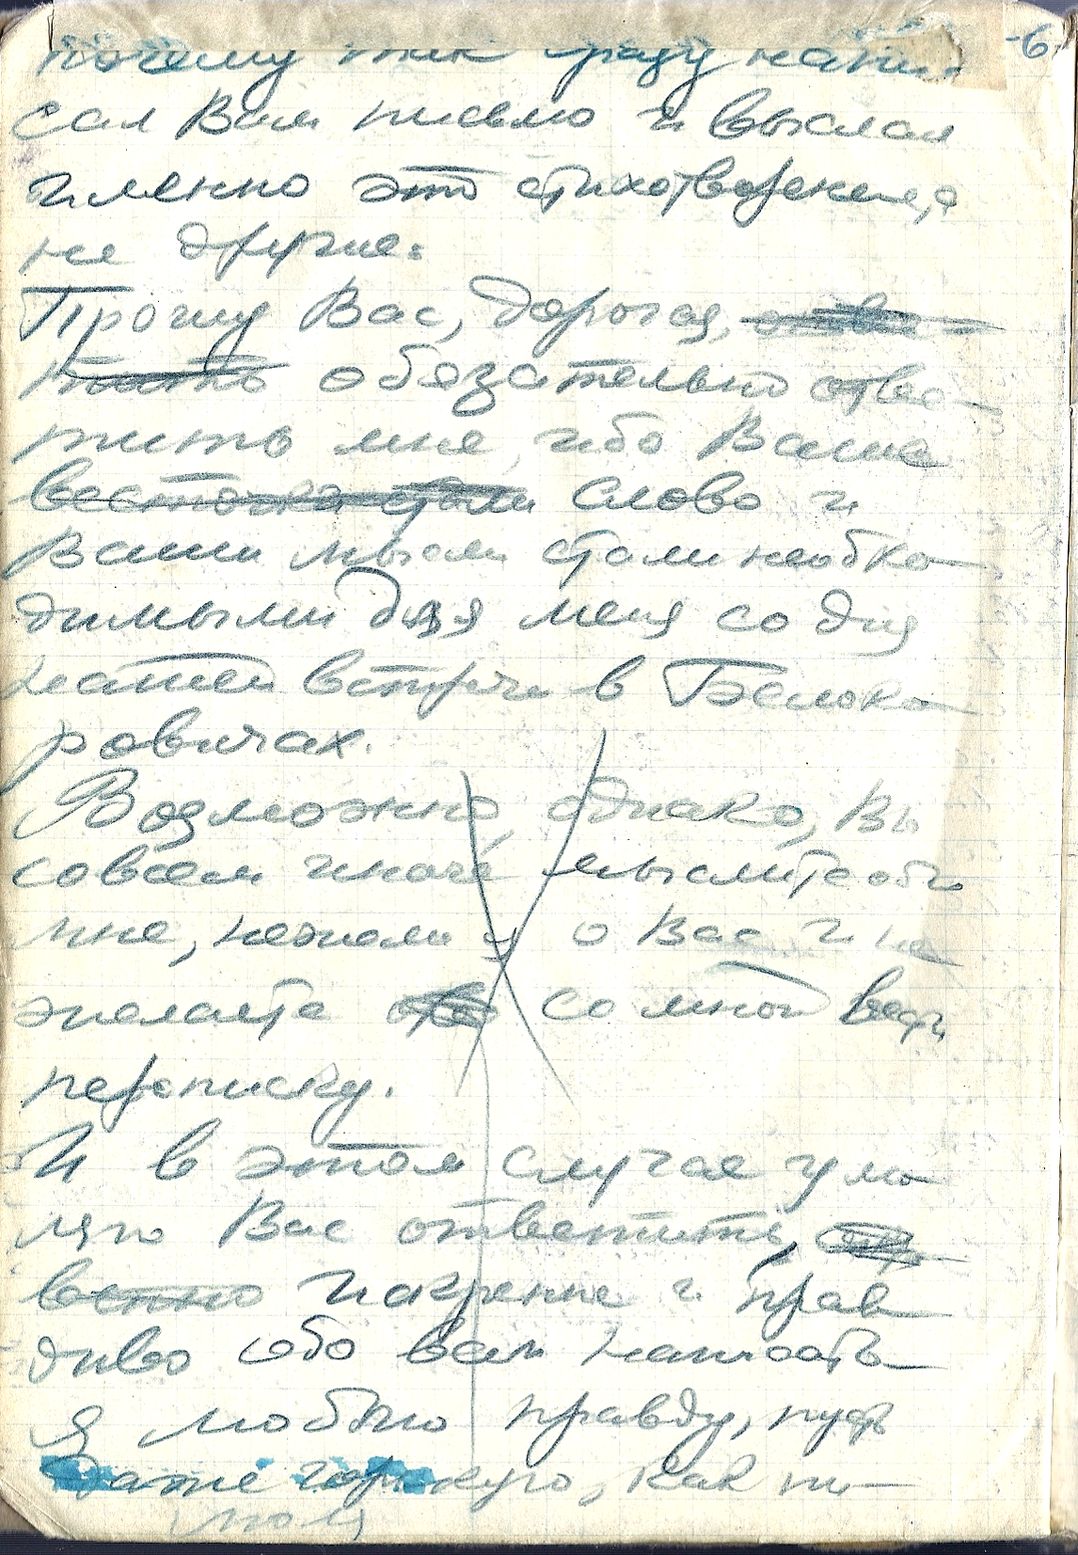 -6
почему так сразу напи-
сал Вам письмо и выслал
именно это стихотворение, а
не другие.
Прошу Вас, дорогая,
обязательно отве-
тить мне, ибо Ваше
слово и
Ваши мысли стали необхо-
димыми для меня со дня
нашей встречи в Белоко-
ровичах.
Возможно, однако, Вы
совсем иначе мыслите обо
мне, нежели я о Вас и не
желаете со мной вести
переписку.
И в этом случае умо-
ляю Вас ответить,
венно искренне и прав-
диво обо всем написать
Я люблю правду, пусть
даже горькую, как по-